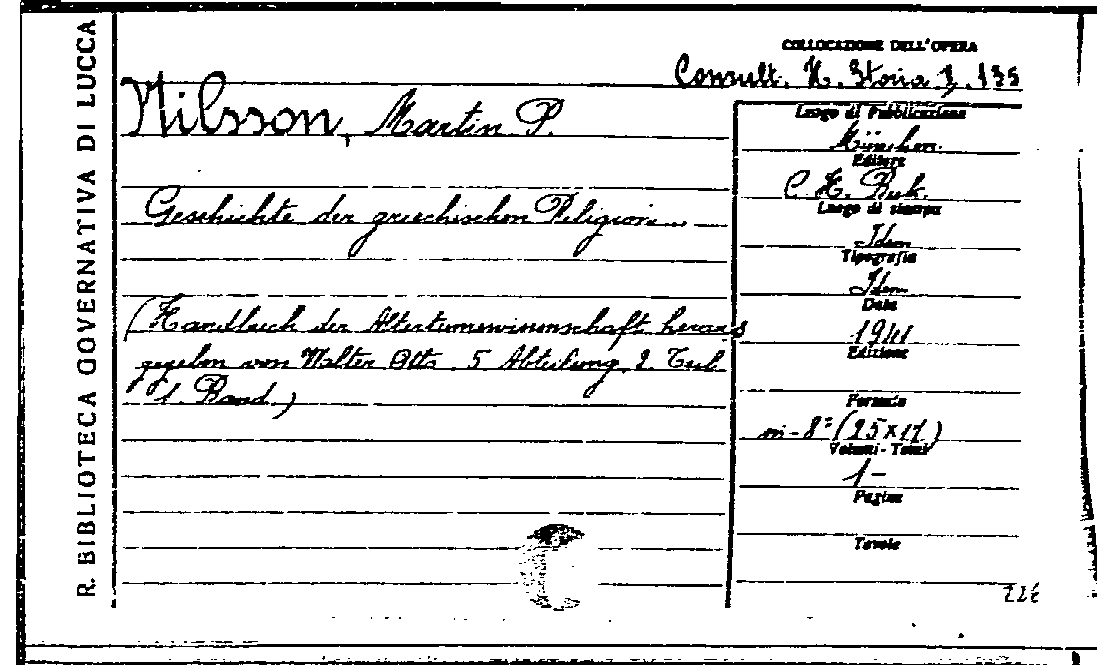 R. BIBLIOTECA GOVERNATIVA DI LUCCA
COLLOCAZIONE DELL'OPERA
Consult. N. Storia J. 135
Nilsson, Martin P.
Geschichte der griechischen Religion
(Handbuch der Altertumswissenschaft heraus
gegeben von Walter Otto. 5 Abteilung, 2. Teil
1. Band.)
Luogo di Pubblicazione
München
Editore
C. H. Beck.
Luogo di stampa
Idem
Tipografia
Idem
Data
1941
Edizione
Formato
in-8° (25x17)
Volumi - Tomi
1-
Pagine
Tavole